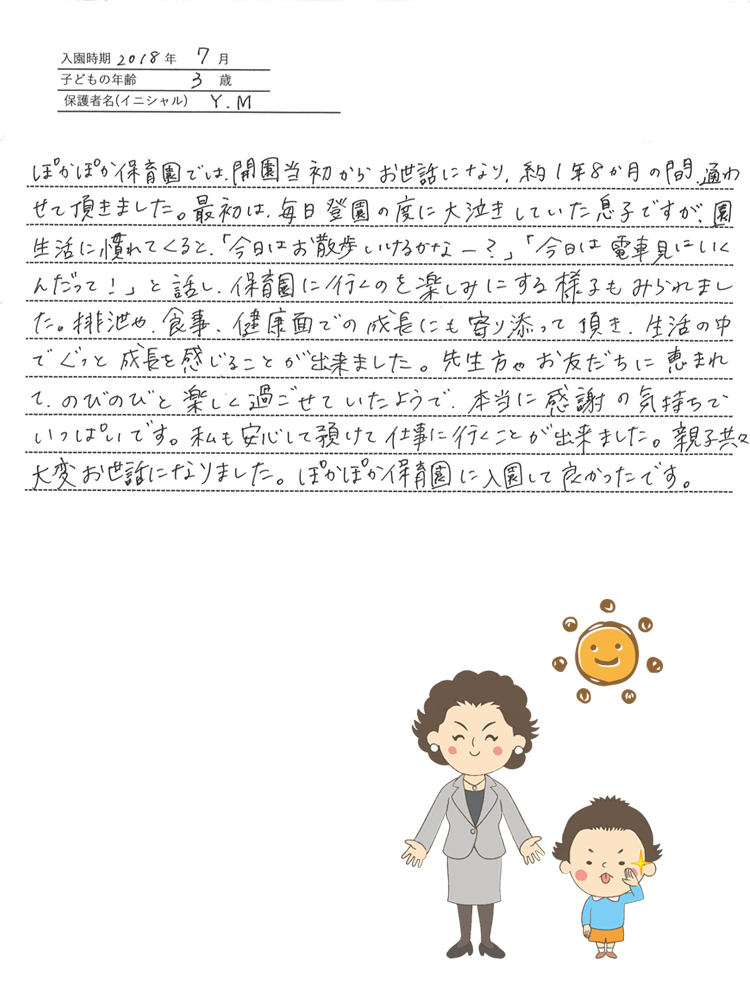 入園時期 2018年 7月
子どもの年齢 3 歳
保護者名(イニシャル) Y.M
ぽかぽか保育園では、開園当初からお世話になり、約1年8か月の間、通わ
せて頂きました。最初は、毎日登園の度に大泣きしていた息子ですが、園
生活に慣れてくると、「今日はお散歩いけるかなー?」「今日は電車見にいく
んだって!」と話し、保育園に行くのを楽しみにする様子もみられまし
た。排泄や、食事、健康面での成長にも寄り添って頂き、生活の中
でぐっと成長を感じることが出来ました。先生方やお友だちに恵まれ
て、のびのびと楽しく過ごせていたようで、本当に感謝の気持ちで
いっぱいです。私も安心して預けて仕事に行くことが出来ました。親子共々
大変お世話になりました。ぽかぽか保育園に入園して良かったです。